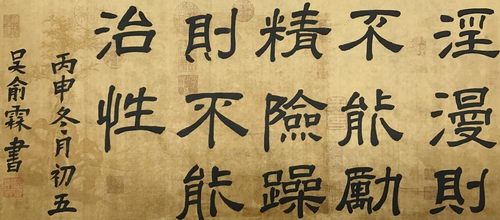 淫漫則
不能勵
精險躁
則不能
治性
丙申冬月初五
吴俞霖書